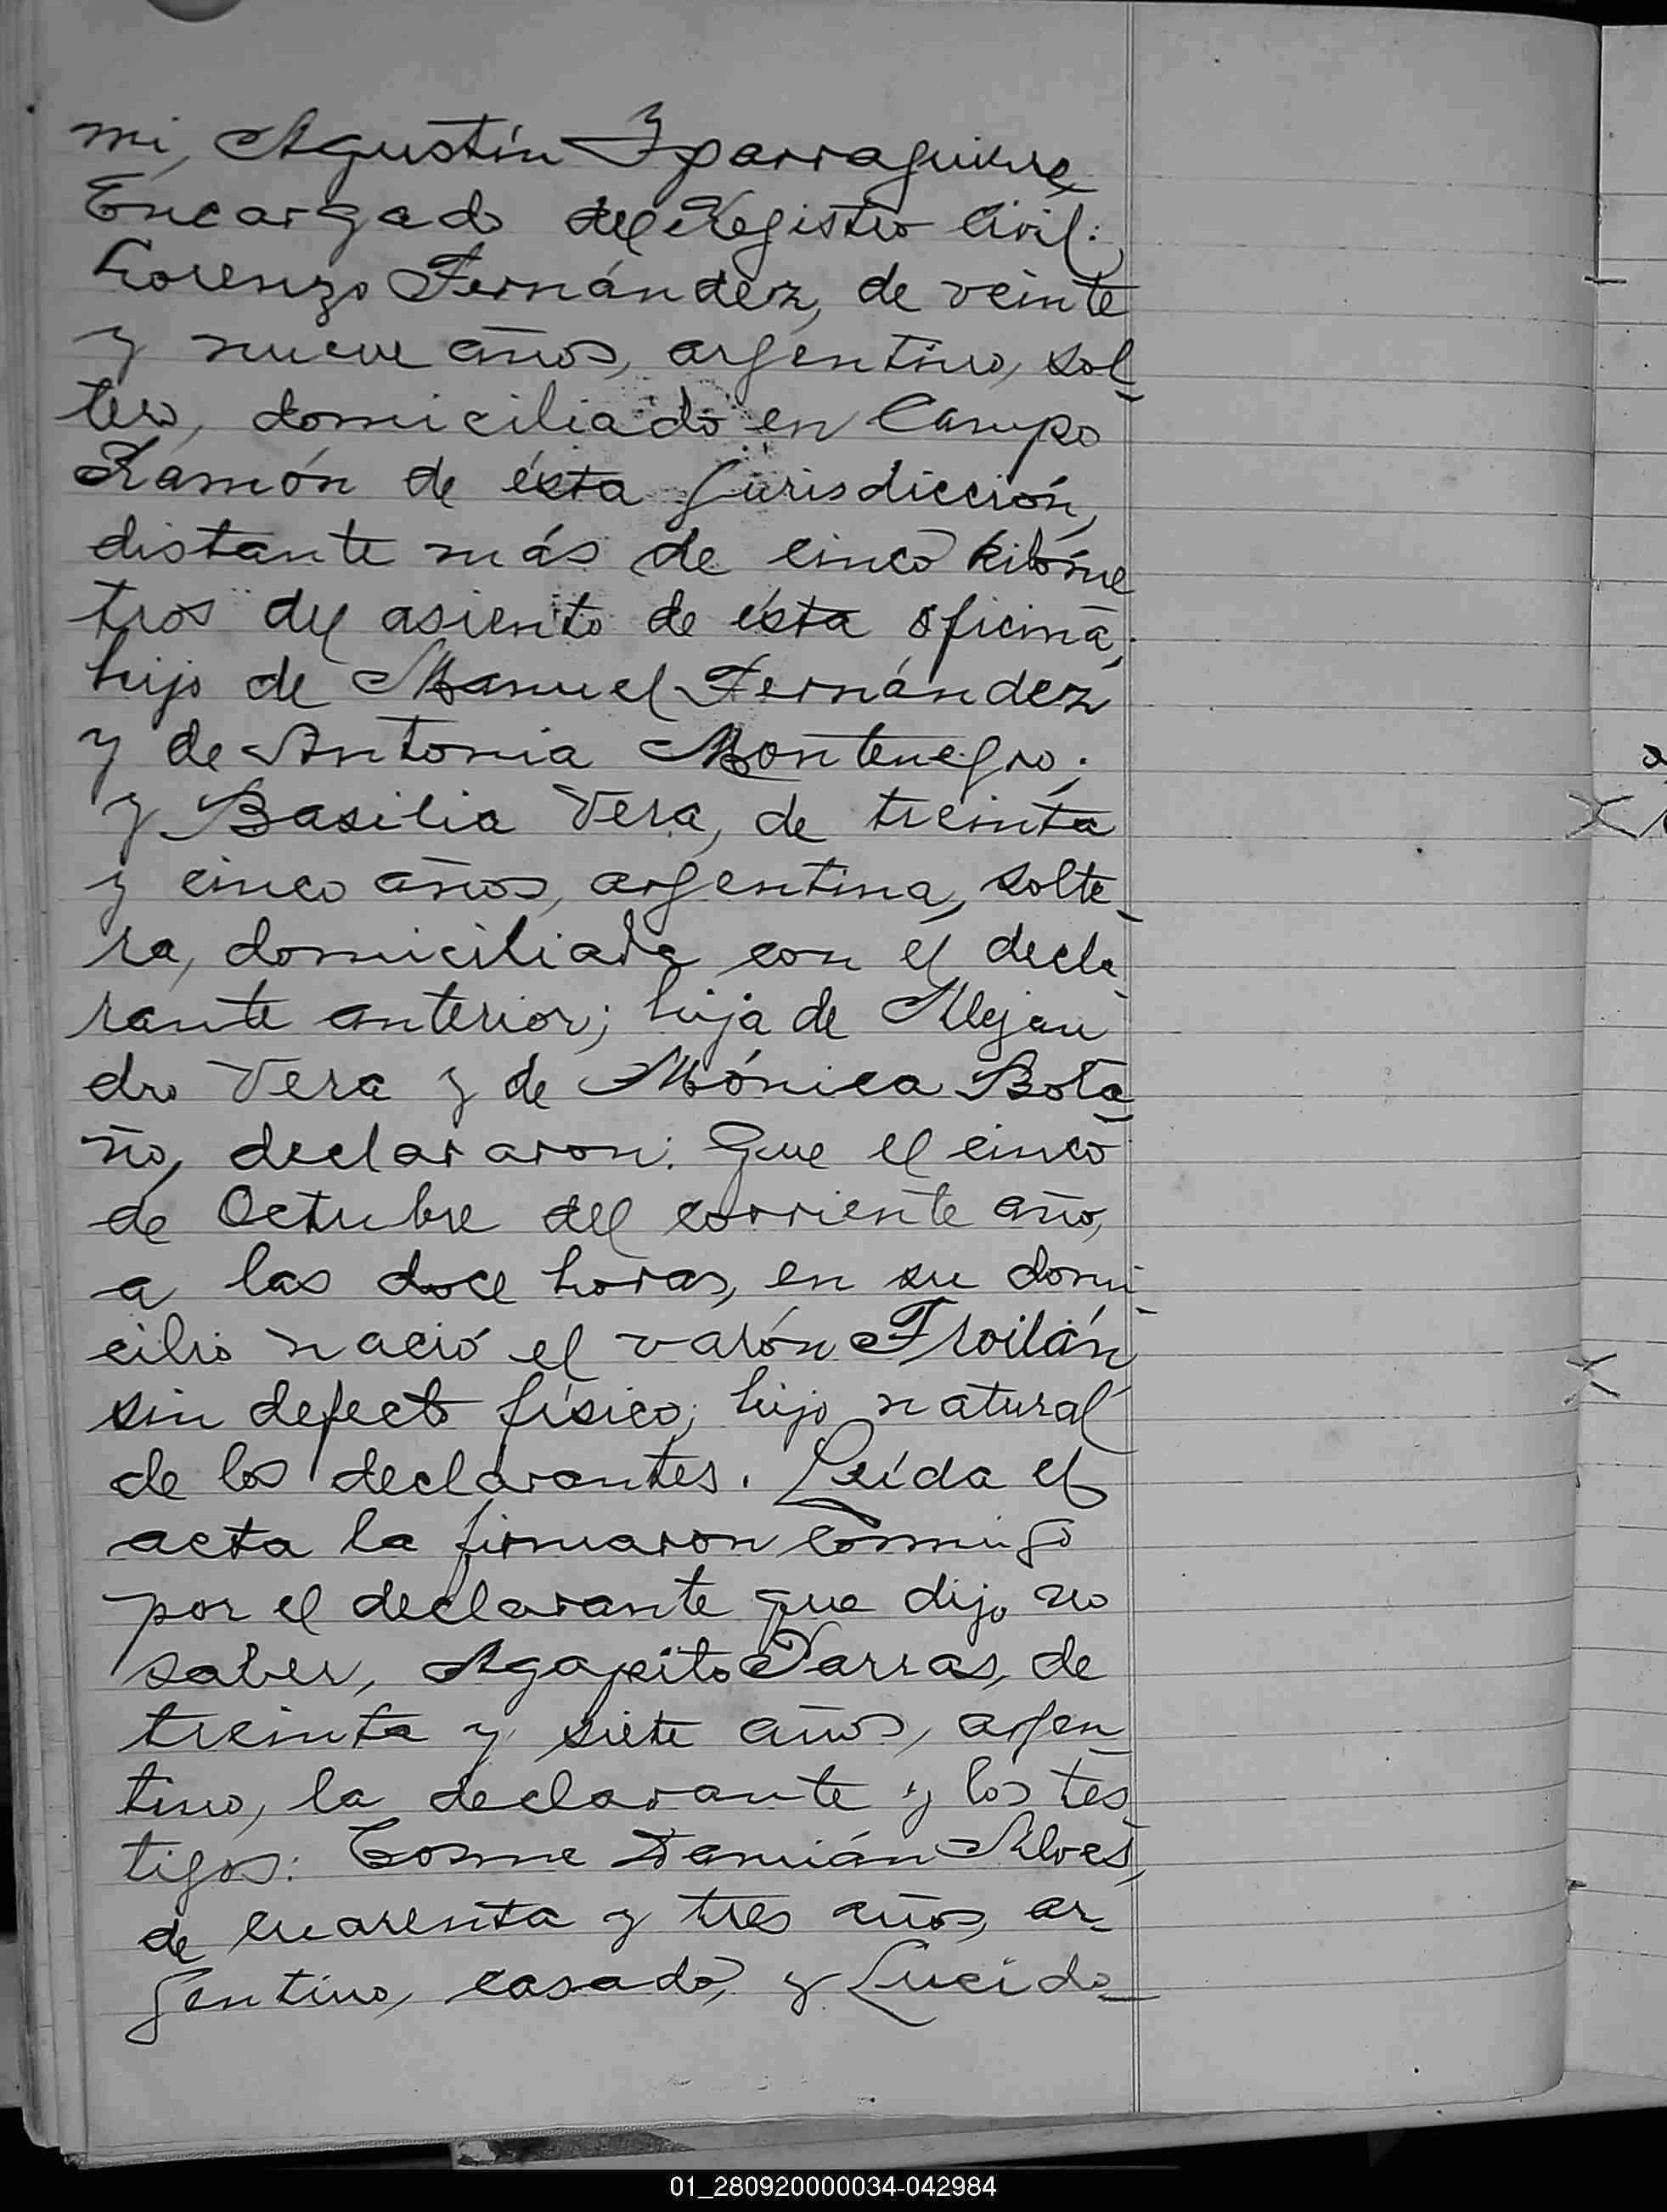 mi, Agustín Yparraguirre
Encargado del Registro Civil:
Lorenzo Fernández, de veinte
y nueve años, argentino, sol-
tero, domiciliado en Campo
Ramón de ésta jurisdicción,
distante más de cinco kilóme
tros del asiento de ésta oficina,
hijo de Manuel Fernández
y de Antonia Montenegro;
y Basilia Vera, de treinta
y cinco años, argentina, solte-
ra, domiciliada con el decla-
rante anterior; hija de Alejan
dro Vera y de Mónica Bota-
ño, declararon: Que el cinco
de Octubre del corriente año,
a las doce horas, en su domi-
cilio nació el varón Froilán
sin defecto físico; hijo natural
de los declarantes. Leída el
acta la firmaron conmigo
por el declarante que dijo no
saber, Agapito Parras, de
treinta y siete años, argen
tino, la declarante y los tes
tigos: Cosme Damián Alves,
de cuarenta y tres años, ar-
gentino, casado, y Lucido
01_280920000034-042984